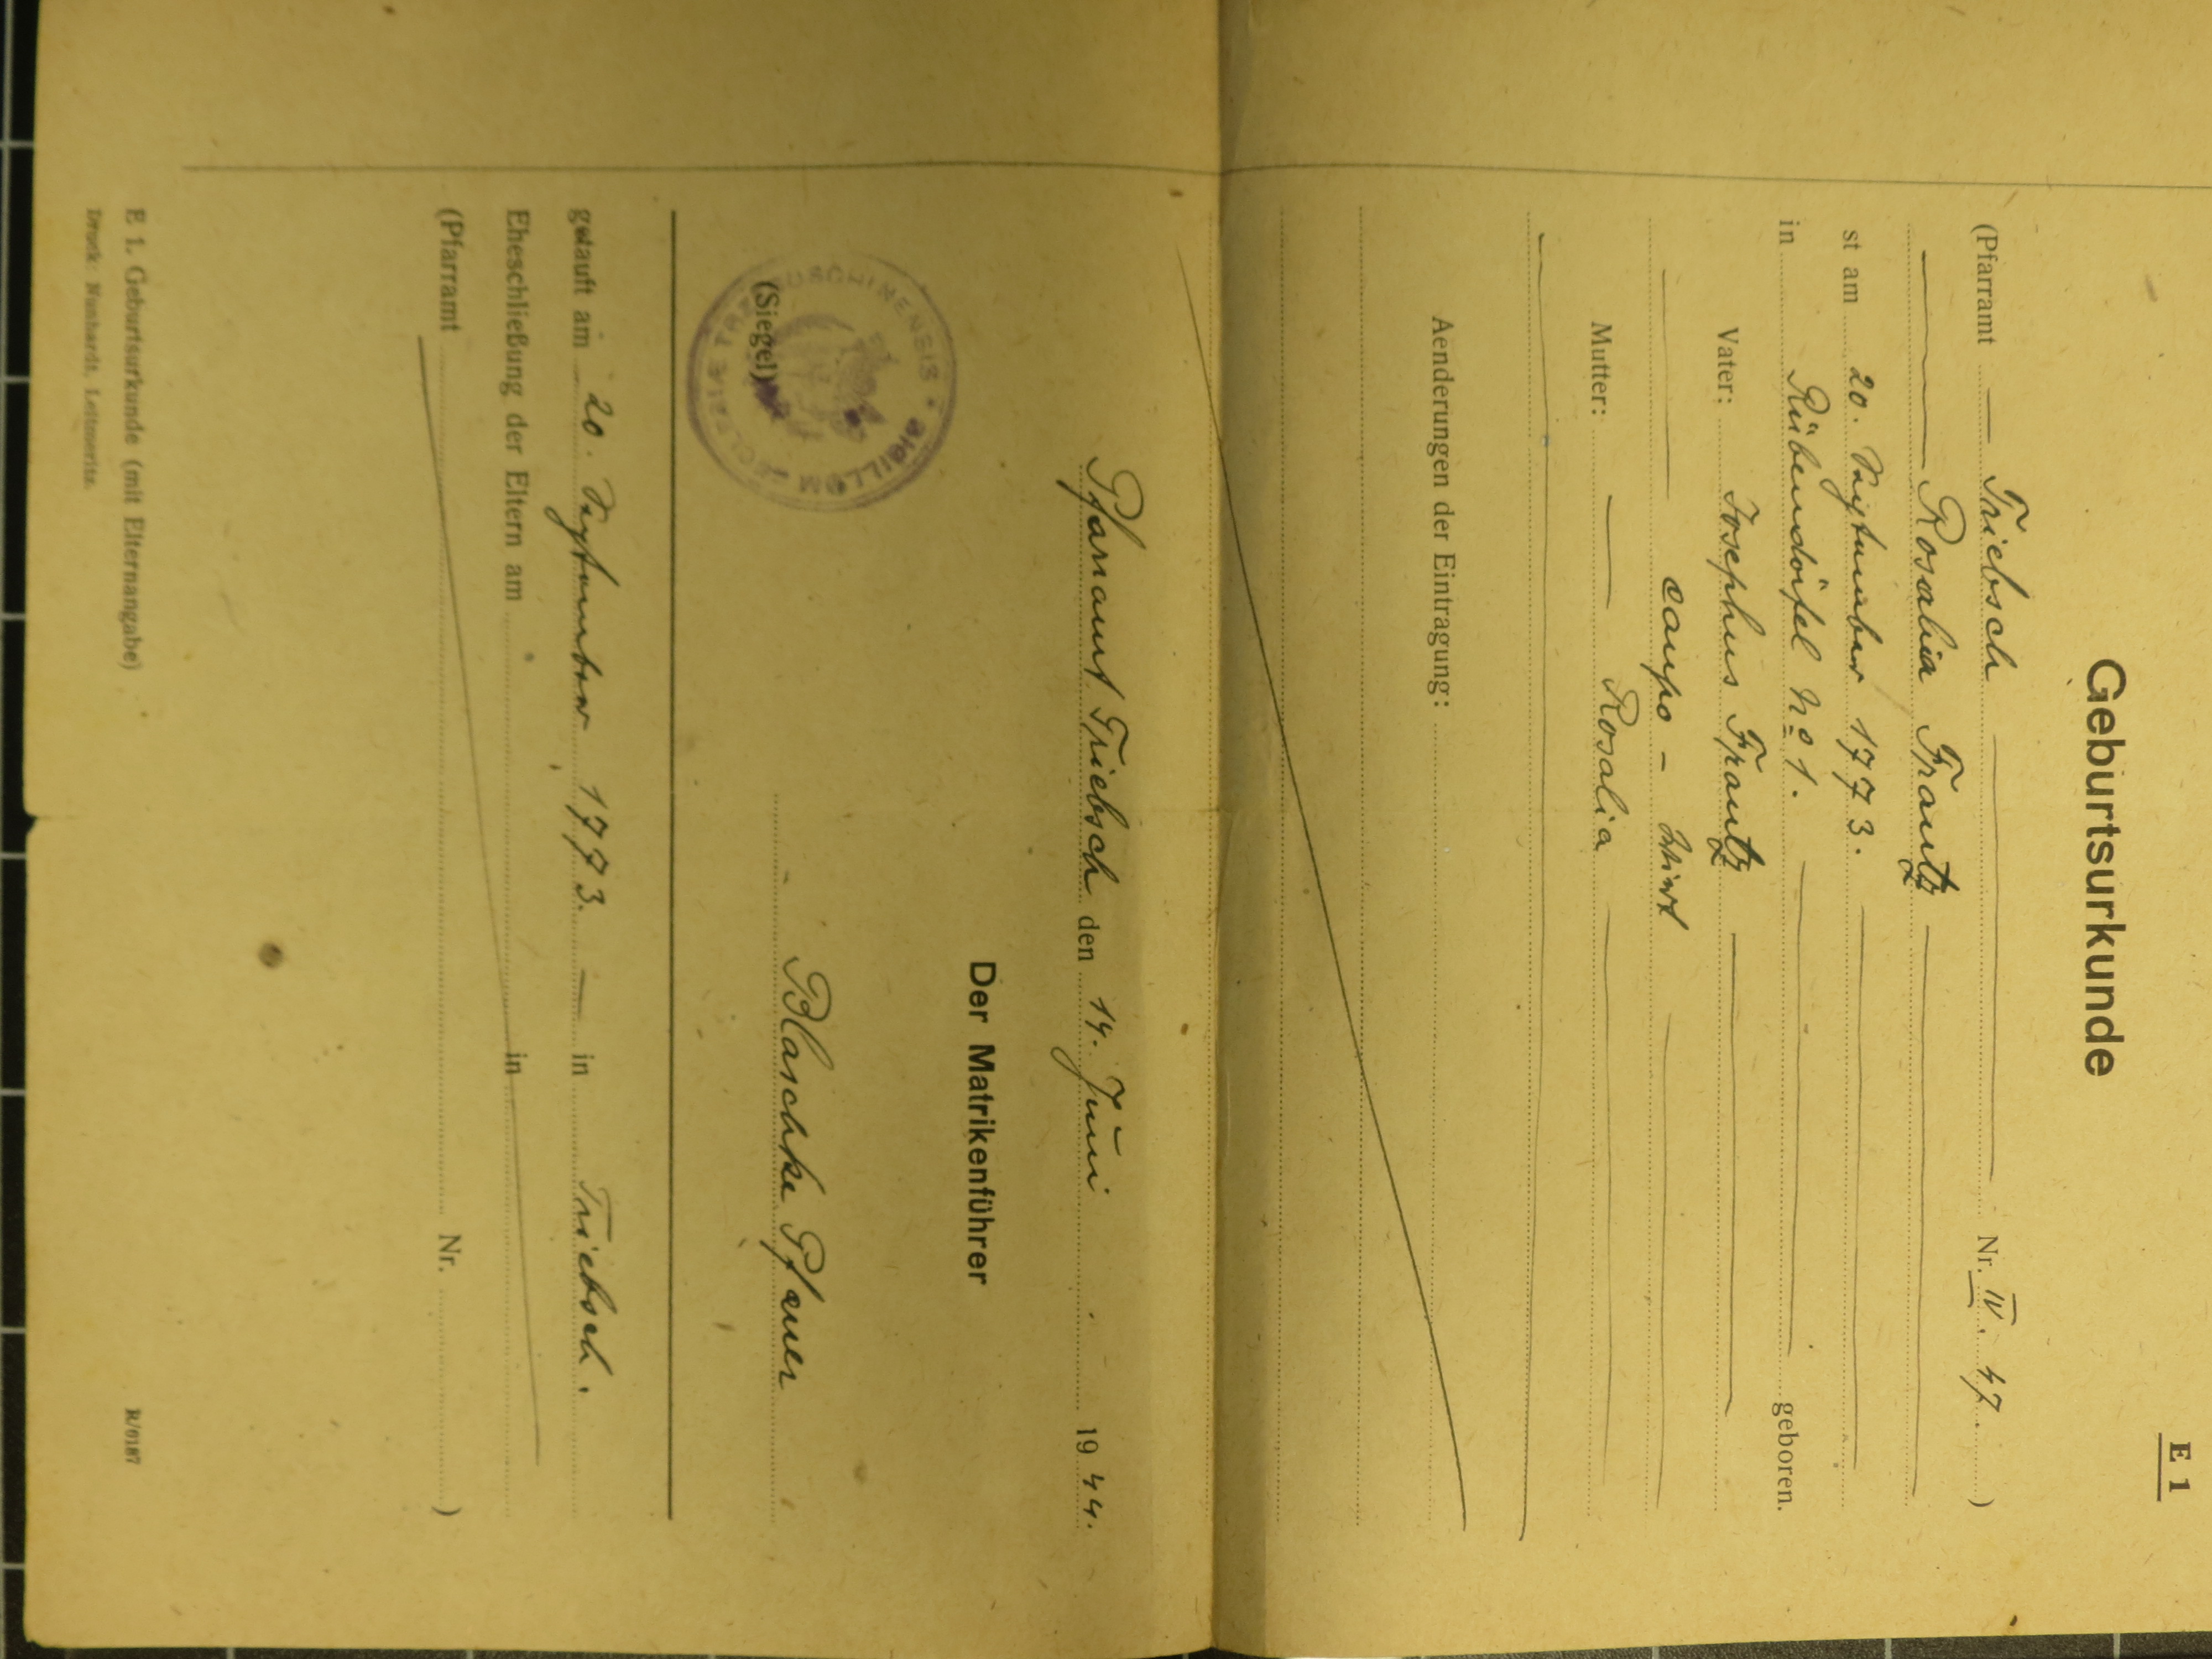 E 1
Geburtsurkunde
(Pfarramt — Triebsch — Nr. IV. 47. )
Rosalia Frantz
st am 20. September 1773.
in Rübendörfel No 1. geboren.
Vater: Josephus Frantz
caupo - Wirt
Mutter: — Rosalia
Aenderungen der Eintragung:
Pfarramt Triebsch den 14. Juni 1944.
Der Matrikenführer
SIGILLUM ECLESIÆ
(Siegel)
Blaschke Pfarrer
getauft am 20. September 1773. — in Triebsch.
Eheschließung der Eltern am in
(Pfarramt Nr. )
E 1. Geburtsurkunde (mit Elternangabe) R/6187
Druck: Leitmeritz.